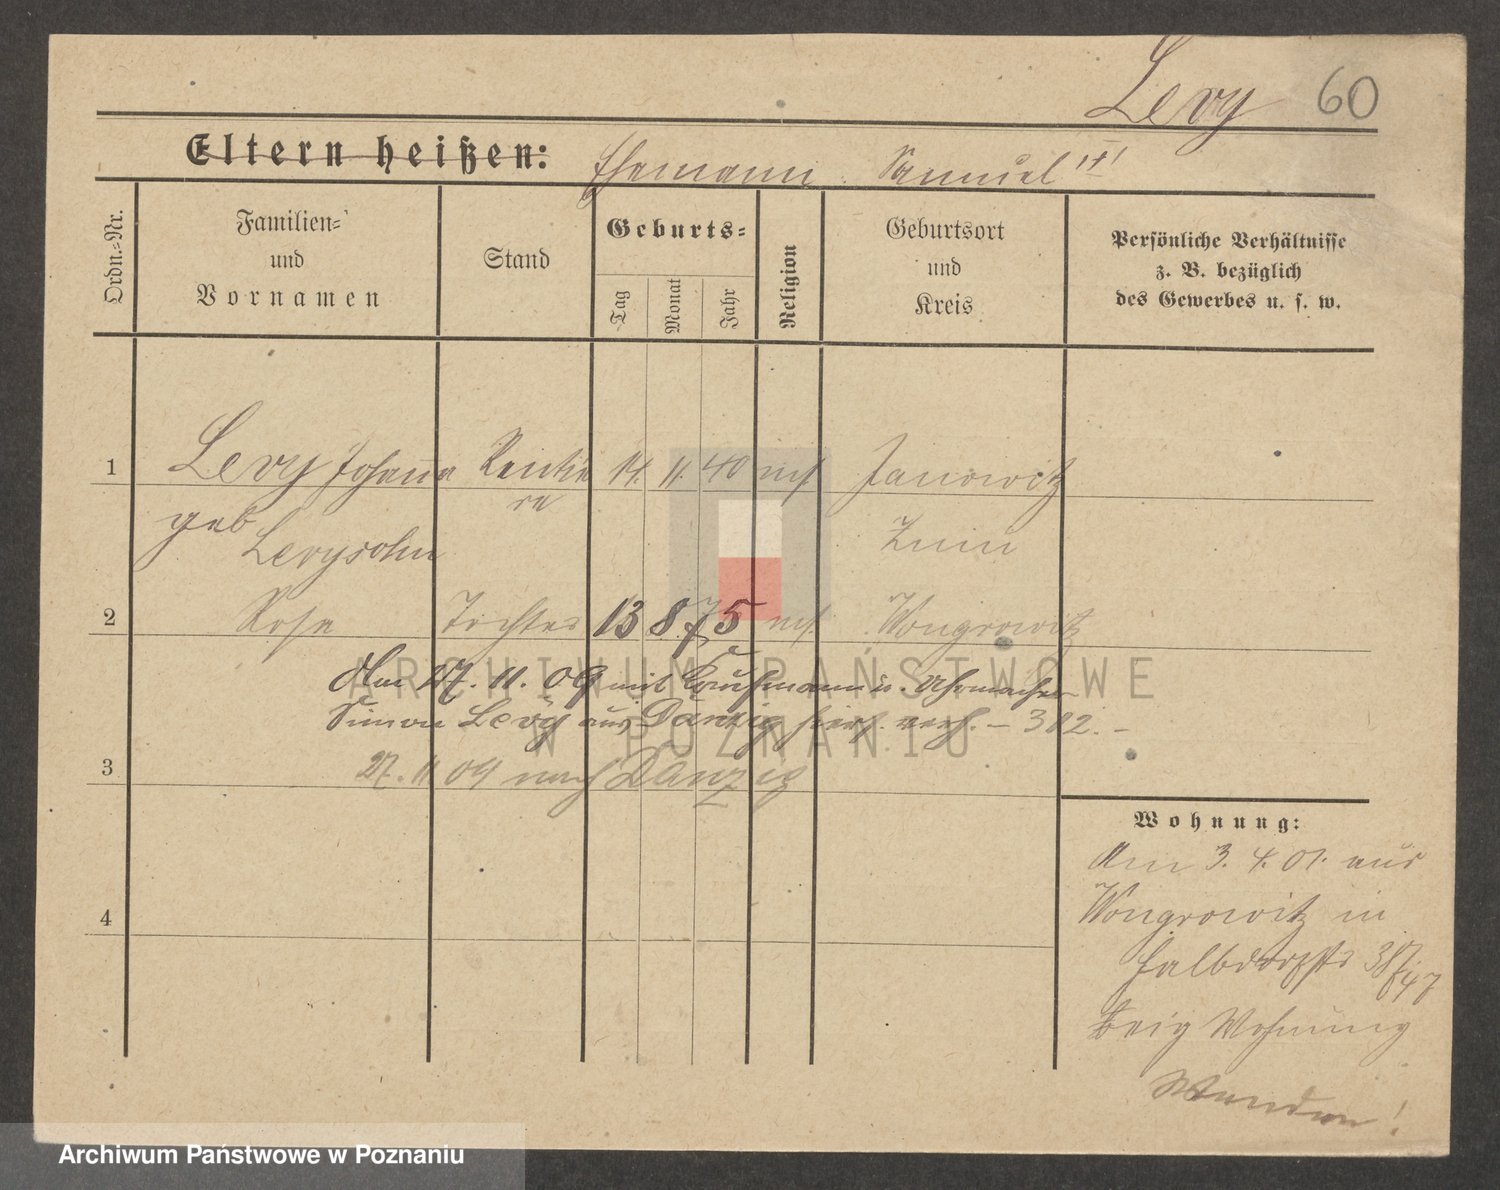 Levy 60
Eltern heißen: Ehemann Samuel
Ordn.=Nr.
Familien=
und
Vornamen
Stand
Geburts=
Tag
Monat
Jahr
Religion
Geburtsort
und
Kreis
Persönliche Verhältnisse
z. B. bezüglich
des Gewerbes u. s. w.
1 Levy Johanna Rentie 14. 11. 40 Janowitz
re
geb Znin
Levysohn
2 Rosa Tochter 13 8 75 Wongrowitz
Am 27. 11. 09 mit Kaufmann u. Uhrmacher
Simon Levy aus Danzig hier verh. - 382. -
3 27. 11 09 nach Danzig
4
Wohnung:
Am 3. 4. 01. aus
Wongrowitz in
Halbdorfstr 38/47
Wohnung
ARCHIWUM PAŃSTWOWE
W POZNANIU
Archiwum Państwowe w Poznaniu